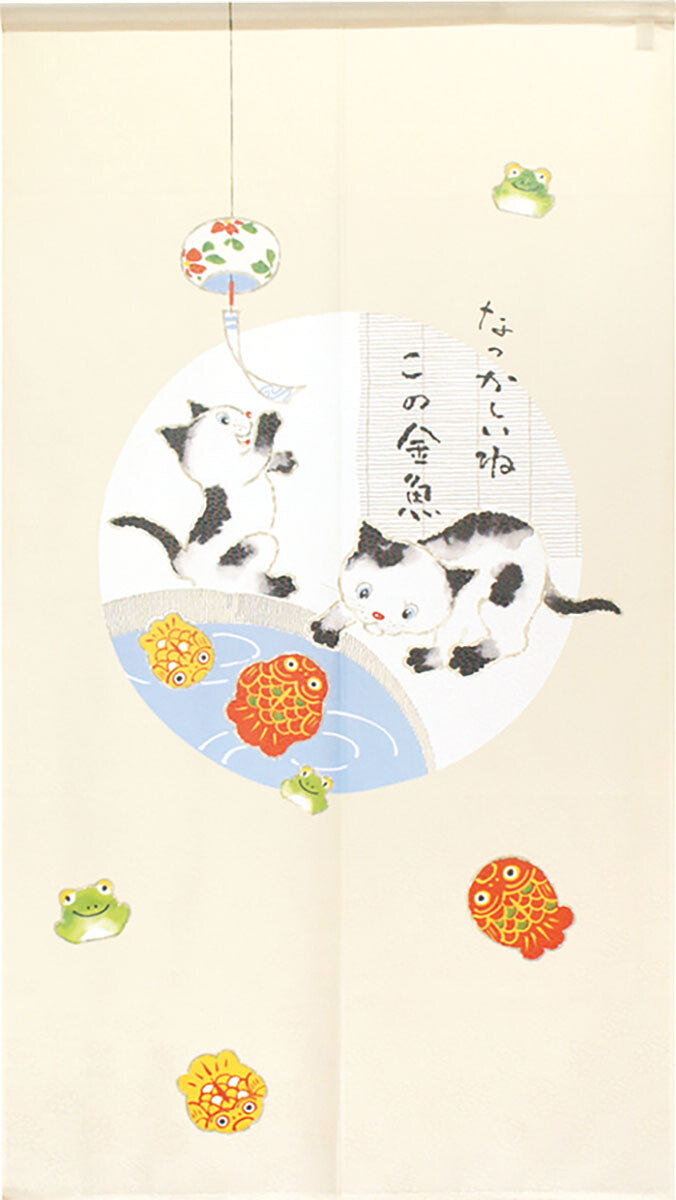 なつかしいね
この金魚